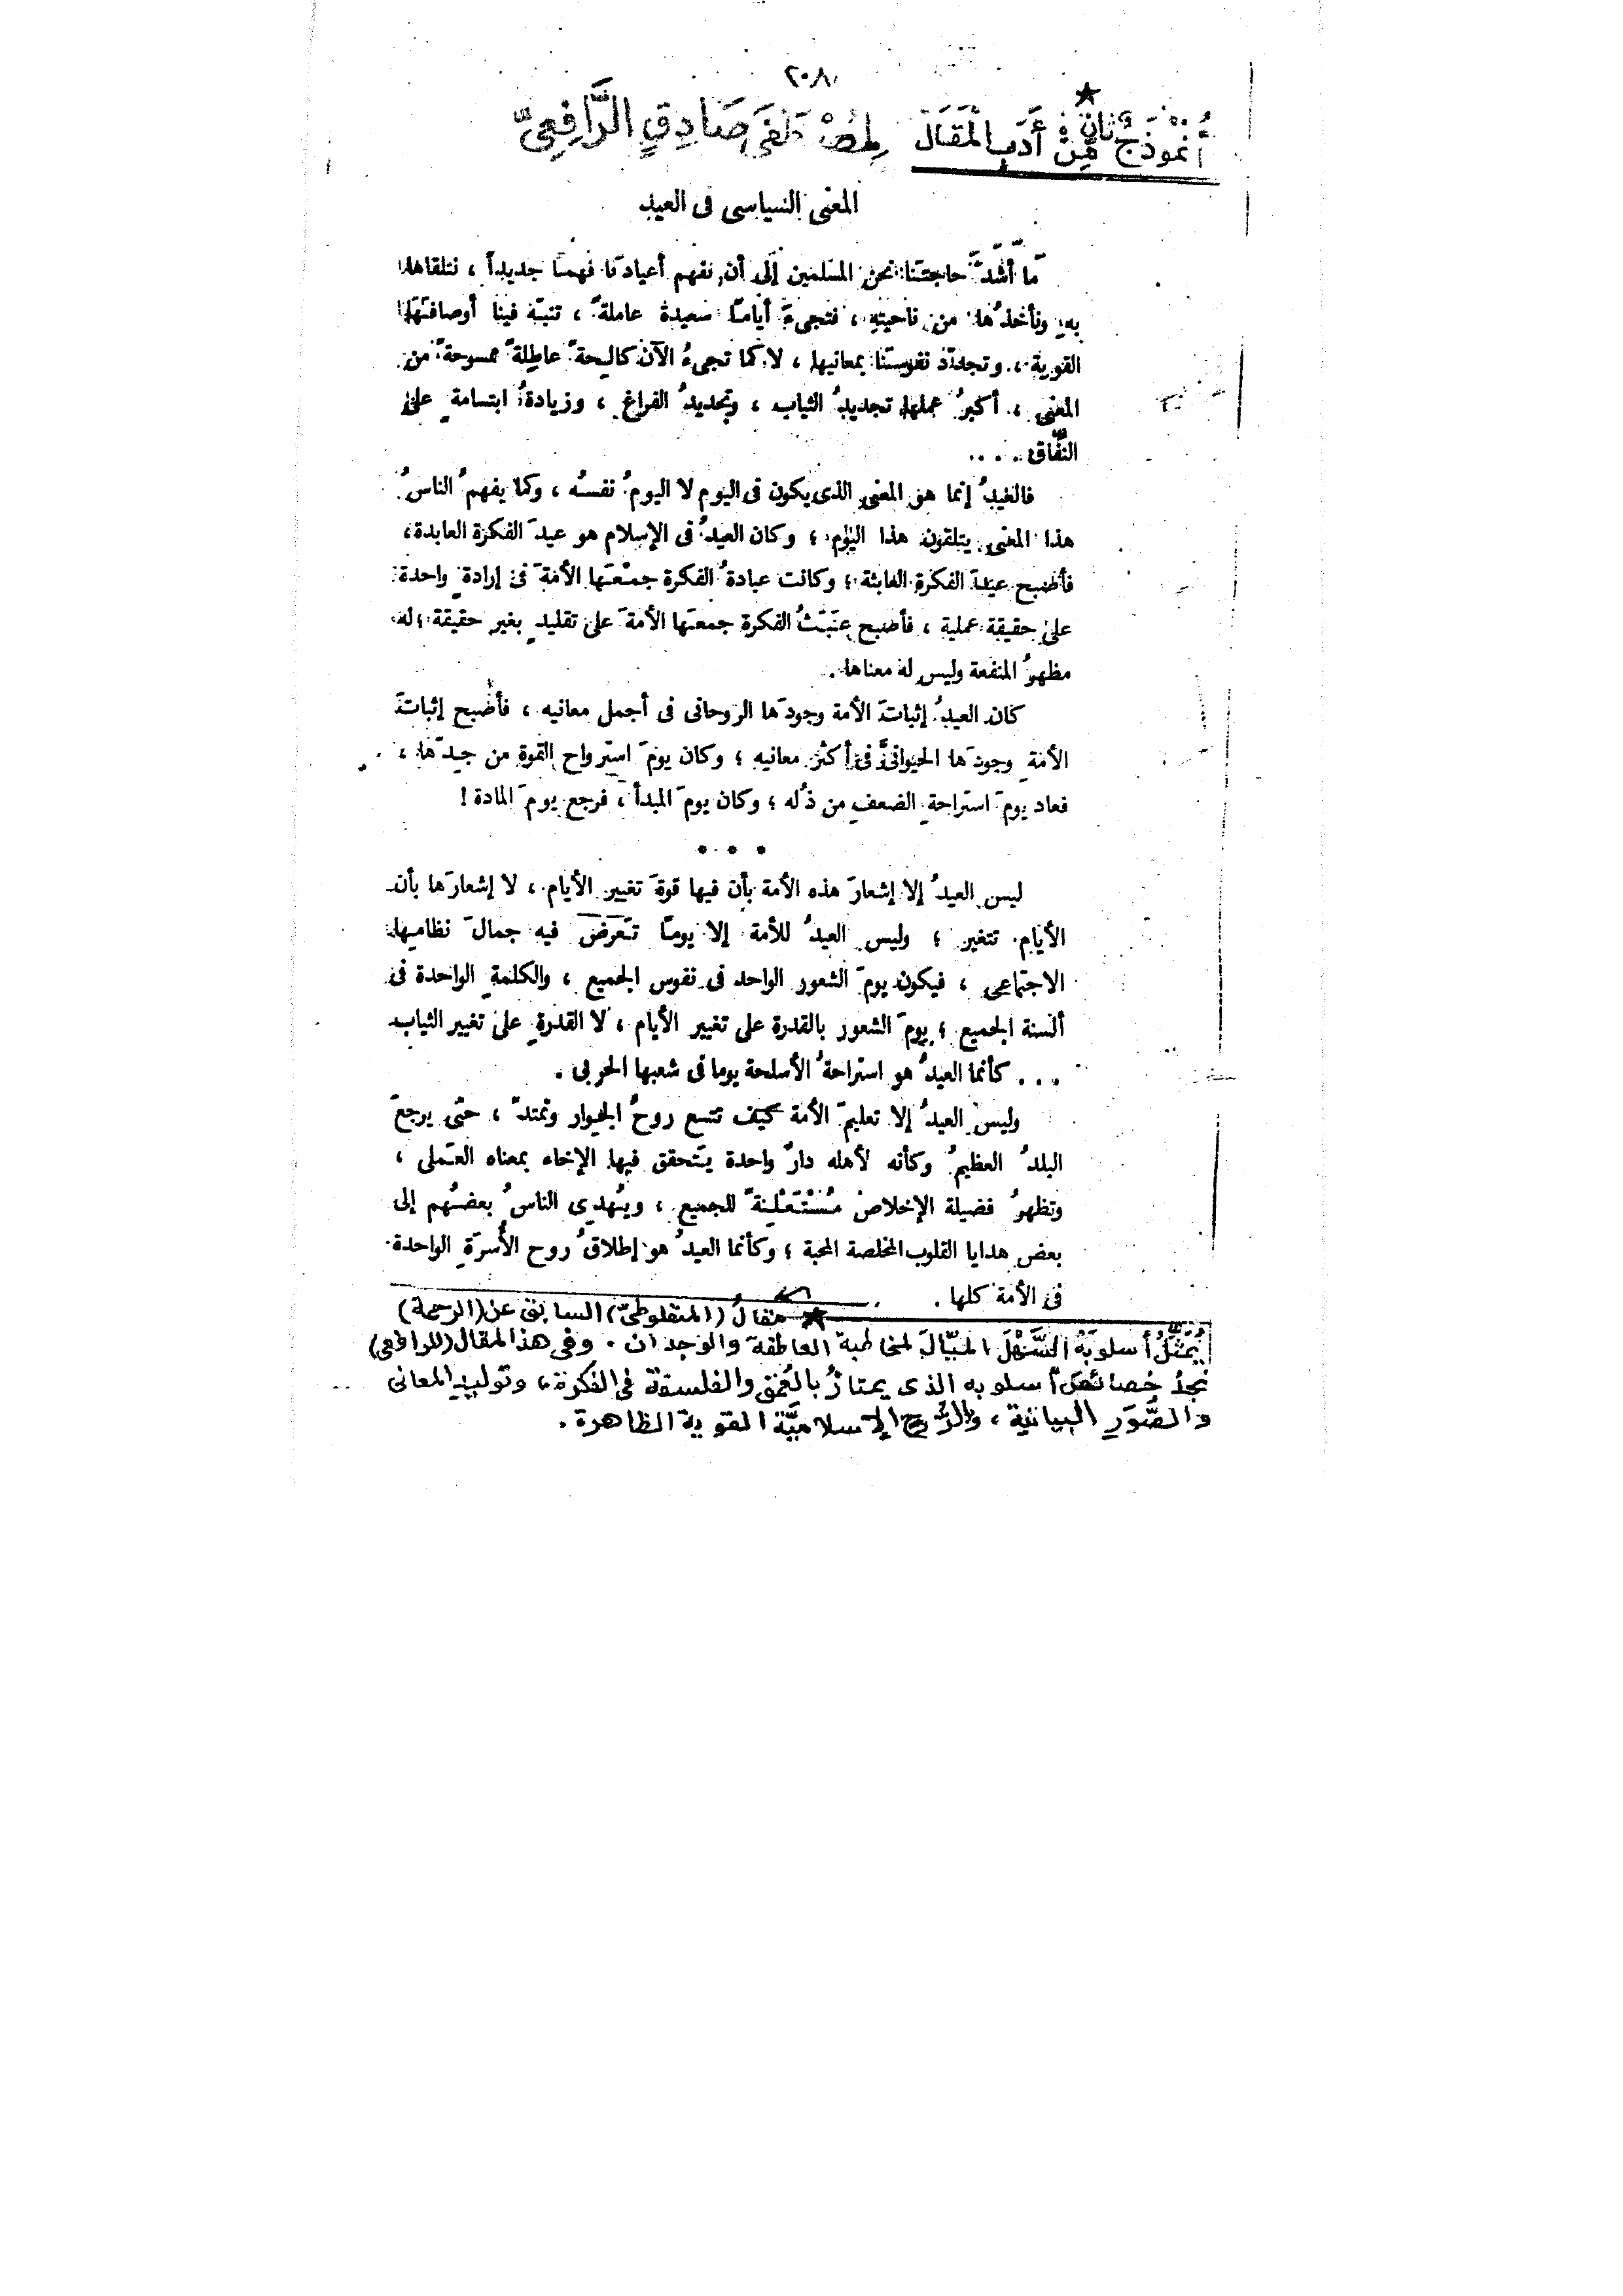 ٢٠٨
أُنْمُوذَجٌ ثَانٍ مِنْ أَدَبِ الْمَقَالِ لِمُصْطَفَى صَادِقِ الرَّافِعِيّ
المعنى السياسى فى العيد
ما أشدَّ حاجتنا نحن المسلمين إلى أن نفهم أعيادَنا فهمًا جديداً ، نتلقاها
به ونأخذُها من ناحيته ، فتجىءَ أيامًا سعيدة عاملةً ، تنبّه فينا أوصافَها
القوية ، وتجدّد نفوسَنا بمعانيها ، لا كما تجىءُ الآن كالحةً عاطلةً ممسوحةً من
المعنى ، أكبرُ عملها تجديدُ الثياب ، وتحديدُ الفراغ ، وزيادةُ ابتسامة على
النِّفاق . . .
فالعيدُ إنما هو المعنى الذى يكون فى اليوم لا اليومُ نفسُه ، وكما يفهمُ الناسُ
هذا المعنى يتلقون هذا اليوم ؛ وكان العيدُ فى الإسلام هو عيدَ الفكرة العابدة ،
فأصبح عيدَ الفكرة العابثة ؛ وكانت عبادةُ الفكرة جمْعَها الأمةَ فى إرادةٍ واحدة
على حقيقة عملية ، فأصبح عَبَثُ الفكرة جمعَها الأمةَ على تقليدٍ بغير حقيقة ؛ له
مظهرُ المنفعة وليس له معناها .
كان العيدُ إثباتَ الأمة وجودَها الروحانى فى أجمل معانيه ، فأصبح إثباتَ
الأمةِ وجودَها الحيوانىَّ فى أكثر معانيه ؛ وكان يومَ استرواح القوة من جِدِّها ،
فعاد يومَ استراحةِ الضعفِ من ذُله ؛ وكان يومَ المبدأ ، فرجع يومَ المادة !
• • •
ليس العيدُ إلا إشعارَ هذه الأمة بأن فيها قوةَ تغيير الأيام ، لا إشعارَها بأن
الأيام تتغير ؛ وليس العيدُ للأمة إلا يومًا تَعرضُ فيه جمالَ نظامها
الاجتماعى ، فيكون يومَ الشعور الواحد فى نفوس الجميع ، والكلمةِ الواحدة فى
ألسنة الجميع ؛ يومَ الشعور بالقدرة على تغيير الأيام ، لا القدرةِ على تغيير الثياب
. . . كأنما العيدُ هو استراحةُ الأسلحة يوما فى شعبها الحربى .
وليس العيدُ إلا تعليمَ الأمة كيف تتسع روحُ الجوار وتمتدّ ، حتى يرجعَ
البلدُ العظيمُ وكأنه لأهله دارٌ واحدة يتحقق فيها الإخاء بمعناه العملى ،
وتظهرُ فضيلة الإخلاص مُسْتَعْلِنةً للجميع ، ويُهدِى الناسُ بعضُهم إلى
بعض هدايا القلوب المخلصة المحبة ؛ وكأنما العيدُ هو إطلاقُ روح الأُسرَةِ الواحدة
فى الأمة كلها .
★ مقالُ (المنفلوطىّ) السابق عن (الرحمة)
يُمَثِّلُ أسلوبَهُ السَّهْلَ الميّالَ لمخاطبة العاطفة والوجدان . وفى هذا المقال (للرافعى)
نجدُ خصائصَ أسلوبه الذى يمتازُ بالعُمق والفلسفة فى الفكرة ، وتوليدِ المعانى
والصُّوَرِ البيانية ، والرُّوحِ الإسلاميَّة القوية الظاهرة .